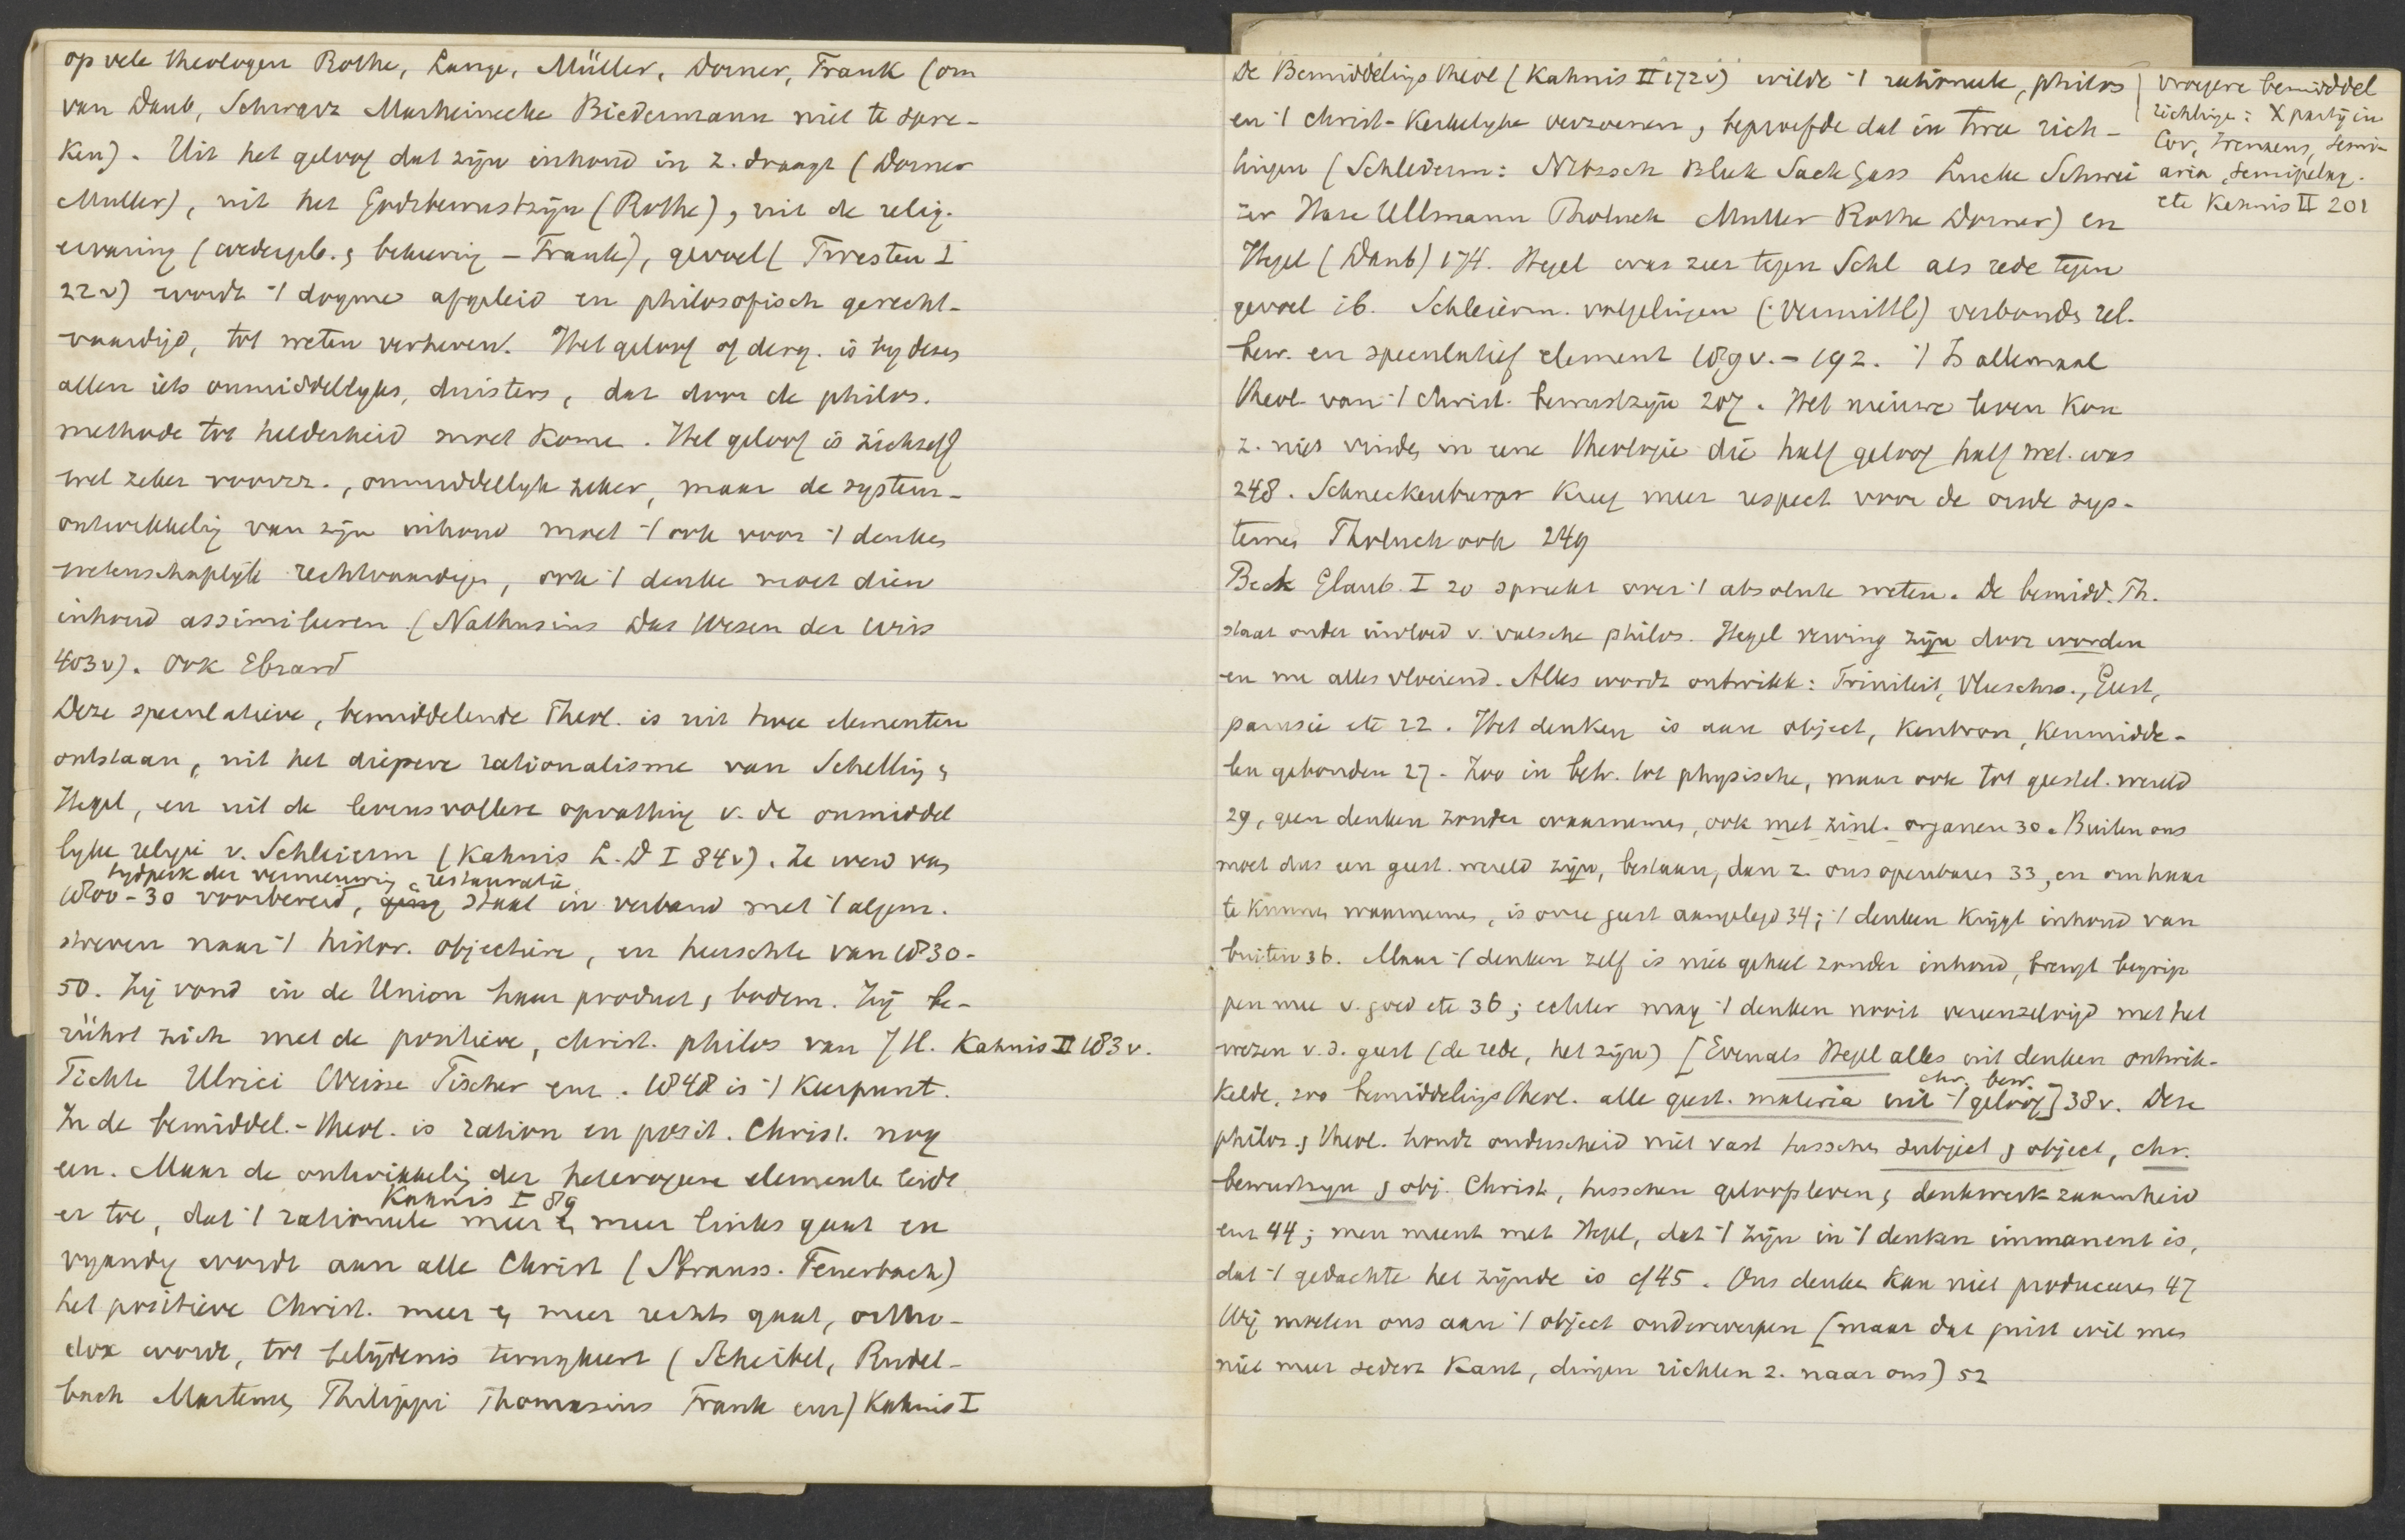 op vele theologen Rothe, Lange, Müller, Dorner, Frank (om
van Daub, Schwarz Marheinecke Biedermann niet te spre-
ken). Uit het geloof dat zijn inhoud in z. draagt (Dorner
Muller), uit het Godsbewustzijn (Rothe), uit de relig.
ervaring (wedergeb. & bekeering – Frank), gevoel (Twesten I
22 v) wordt 't dogme afgeleid en philosofisch gerecht-
vaardigd, tot weten verheven. Het geloof of derg. is by dezen
allen iets onmiddellyks, duisters, dat door de philos.
methode tot helderheid moet kome. Het geloof is zichzelf
wel zeker voorzr., onmiddellyk zeker, maar de system-
ontwikkelig van zijn inhoud moet 't ook voor 't denken
wetenschaplijk rechtvaardigen, ook 't denke moet dien
inhoud assimileren (Nathusius Das Wesen der Wiss
403 v). Ook Ebrard
Deze speculatieve, bemiddelende Theol. is uit twee elementen
ontstaan, uit het diepere rationalisme van Schelling &
Hegel, en uit de levensvollere opvatting v. de onmiddel
lyke religie v. Schleierm (Kahnis L. D I 84 v). Ze werd van
tydperk der vernieuwing & restauratie
1800-30 voorbereid, ging staat in verband met 't algem.
streven naar 't histor. objectieve, en heerschte van 1830-
50. Zij vond in de Union haar product & bodem. Zij be-
rührt zich met de positieve, christ. philos van J H. Kahnis II 183 v.
Fichte Ulrici Weisse Fischer enz. 1848 is 't keerpunt.
In de bemiddel.-theol. is ration en posit. Christ. nog
een. Maar de ontwikkelig der heterogene elemente leidt
Kahnis I 89
er toe, dat 't rationeele meer & meer links gaat en
vyandig wordt aan alle Christ (Strauss. Feuerbach)
het positieve Christ. meer & meer rechts gaat, ortho-
dox wordt, tot belijdenis terugkeert (Scheibel, Rudel-
bach Martensen Philippi Thomasius Frank enz) Kahnis I
De Bemiddelings theol (Kahnis II 172 v) wilde 't rationeele, philos
en 't christ-kerkelyke verzoenen, beproefde dat in twee rich-
tingen (Schleierm: Nitzsch Bleek Sack Gass Lucke Schwei
zer Hase Ullmann Tholuck Muller Rothe Dorner) en
Hegel (Daub) 174. Hegel was zeer tegen Schl als rede tegen
gevoel ib. Schleierm. volgelingen (: Vermittl) verbonden rel.
bew. en speculatief element 189 v. – 192. 't Is allemaal
theol van 't christ. bewustzijn 207. Het nieuwe leven kon
z. niet vinden in eene theologie die half geloof half wet. was
248. Schneckenburger kreeg meer respect voor de oude sys-
temen Tholuck ook 249
Beck Glaub. I 20 spreekt over 't absolute weten. De bemidd. Th.
staat onder invloed v. valsche philos. Hegel verving zijn door worden
en nu alles vloeiend. Alles wordt ontwikk: Triniteit, Vleeschw., Geest,
parusie etc 22. Het denken is aan object, kenbron, kenmidde-
len gebonden 27 - Zoo in betr. tot physische, maar ook tot geestel. wereld
29, geen denken zonder waarnemen, ook met zinl. organen 30. Buiten ons
moet dus een geest. wereld zijn, bestaan, dan z. ons openbaren 33, en om haar
te kunnen waarnemen, is onze geest aangelegd 34; 't denken krygt inhoud van
buiten 36. Maar 't denken zelf is niet geheel zonder inhoud, brengt begrip
pen mee v. goed etc 36; echter mag 't denken nooit vereenzelvigd met het
wezen v. d. geest (de rede, het zijn) [Evenals Hegel alles uit denken ontwik-
chr. bew.
kelde, zoo bemiddelings theol. alle geest. materia uit 't geloof] 38 v. Deze
philos. & theol. houdt onderscheid niet vast tusschen subject & object, chr.
bewustzyn & obj. Christ, tusschen geloofsleven & denkwerkzaamheid
enz 44; men meent met Hegel, dat 't zijn in 't denken immanent is,
dat 't gedachte het zijnde is cf 45. Ons denken kan niet produceeren 47
Wij moeten ons aan 't object onderwerpen [maar dat juist wil men
niet meer sedert Kant, dingen richten z. naar ons] 52
vroegere bemiddel
richtinge: X partij in
Cor, Irenaeus, semi-
aria, semipelag.
etc Kahnis II 201